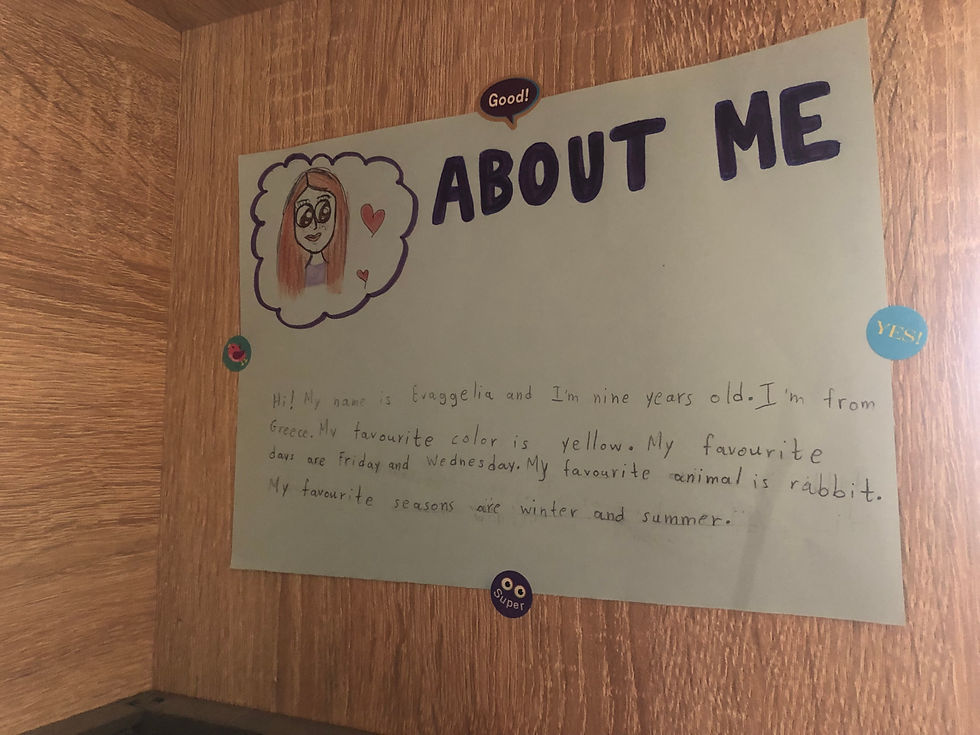 Good!
ABOUT ME
YES!
Hi! My name is Evaggelia and I'm nine years old. I'm from
Greece. My favourite color is yellow. My favourite
days are Friday and Wednesday. My favourite animal is rabbit.
My favourite seasons are winter and summer.
Super